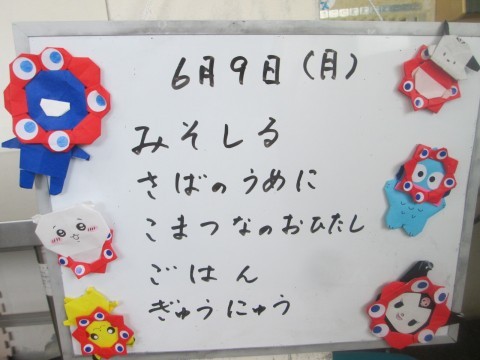 6月9日(月)
みそしる
さばのうめに
こまつなのおひたし
ごはん
ぎゅうにゅう